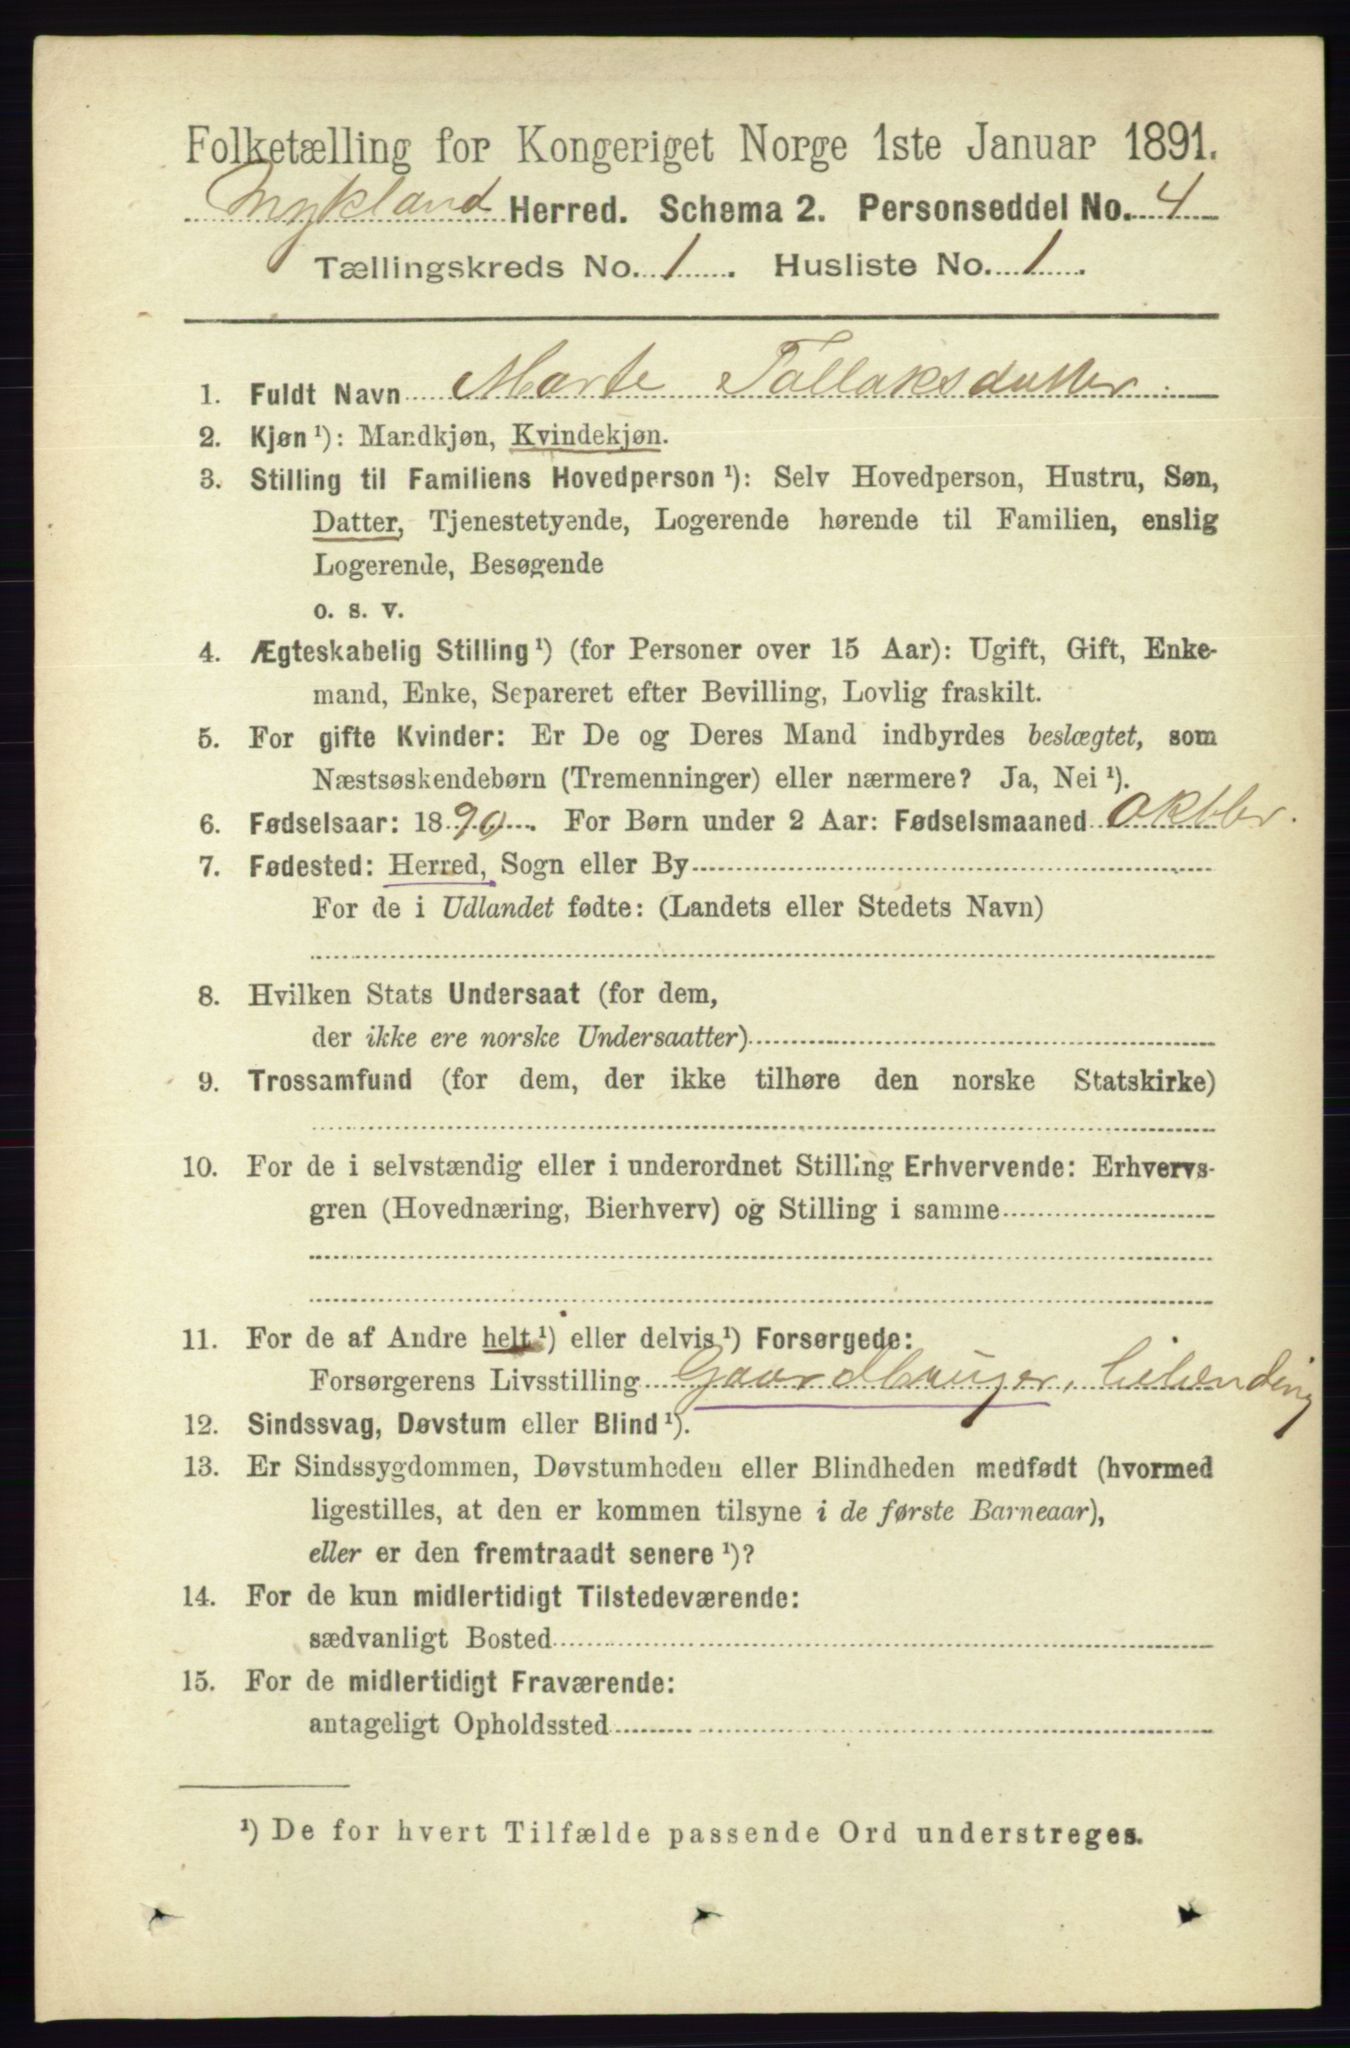 Folketælling for Kongeriget Norge 1ste Januar 1891.
Mykland Herred. Schema 2. Personseddel No. 4
Tællingskreds No. 1. Husliste No. 1.
1. Fuldt Navn Marte Tallaksdatter.
2. Kjøn ¹): Mandkjøn, Kvindekjøn.
3. Stilling til Familiens Hovedperson ¹): Selv Hovedperson, Hustru, Søn,
Datter, Tjenestetyende, Logerende hørende til Familien, enslig
Logerende, Besøgende
o. s. v.
4. Ægteskabelig Stilling ¹) (for Personer over 15 Aar): Ugift, Gift, Enke-
mand, Enke, Separeret efter Bevilling, Lovlig fraskilt.
5. For gifte Kvinder: Er De og Deres Mand indbyrdes beslægtet, som
Næstsøskendebørn (Tremenninger) eller nærmere? Ja, Nei ¹).
6. Fødselsaar: 1890. For Børn under 2 Aar: Fødselsmaaned Oktbr.
7. Fødested: Herred, Sogn eller By
For de i Udlandet fødte: (Landets eller Stedets Navn)
8. Hvilken Stats Undersaat (for dem,
der ikke ere norske Undersaatter)
9. Trossamfund (for dem, der ikke tilhøre den norske Statskirke)
10. For de i selvstændig eller i underordnet Stilling Erhvervende: Erhvervs-
gren (Hovednæring, Bierhverv) og Stilling i samme
11. For de af Andre helt ¹) eller delvis ¹) Forsørgede:
Forsørgerens Livsstilling Gaardbruger, Leilending
12. Sindssvag, Døvstum eller Blind ¹).
13. Er Sindssygdommen, Døvstumheden eller Blindheden medfødt (hvormed
ligestilles, at den er kommen tilsyne i de første Barneaar),
eller er den fremtraadt senere ¹)?
14. For de kun midlertidigt Tilstedeværende:
sædvanligt Bosted
15. For de midlertidigt Fraværende:
antageligt Opholdssted
¹) De for hvert Tilfælde passende Ord understreges.